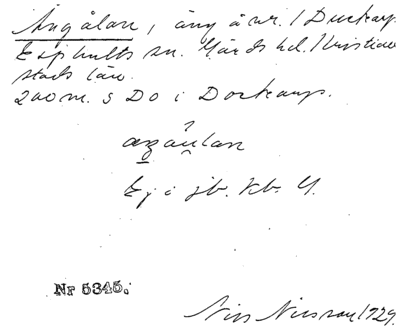 Ängålan, äng å nr. 1 Dockarp.
Esphults sn. Gärds hd. Kristian
stads län.
200 m. S Do i Dockarp.
Ej i jb. Kb. G.
Nr 5345.
Nils Nilsson 1929.